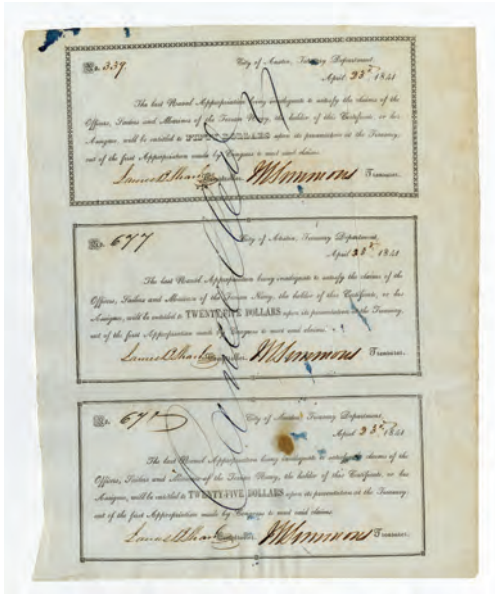 No. 339 City of Austin, Treasury Department,
April 23d 1841
The last Naval Appropriation being inadequate to satisfy the claims of the
Officers, Sailors and Marines of the Texas Navy, the holder of this Certificate, or his
Assigns, will be entitled to FIFTY DOLLARS upon its presentation at the Treasury,
out of the first Appropriation made by Congress to meet said claims.
James B. Shaw Comptroller. Wm Simmons Treasurer.
No. 677 City of Austin, Treasury Department,
April 23d 1841
The last Naval Appropriation being inadequate to satisfy the claims of the
Officers, Sailors and Marines of the Texas Navy, the holder of this Certificate, or his
Assigns, will be entitled to TWENTY-FIVE DOLLARS upon its presentation at the Treasury,
out of the first Appropriation made by Congress to meet said claims.
James B. Shaw Comptroller. Wm Simmons Treasurer.
No. City of Austin, Treasury Department,
April 23d 1841
The last Naval Appropriation being inadequate to satisfy the claims of the
Officers, Sailors and Marines of the Texas Navy, the holder of this Certificate, or his
Assigns, will be entitled to TWENTY-FIVE DOLLARS upon its presentation at the Treasury,
out of the first Appropriation made by Congress to meet said claims.
James B. Shaw Comptroller. Wm Simmons Treasurer.